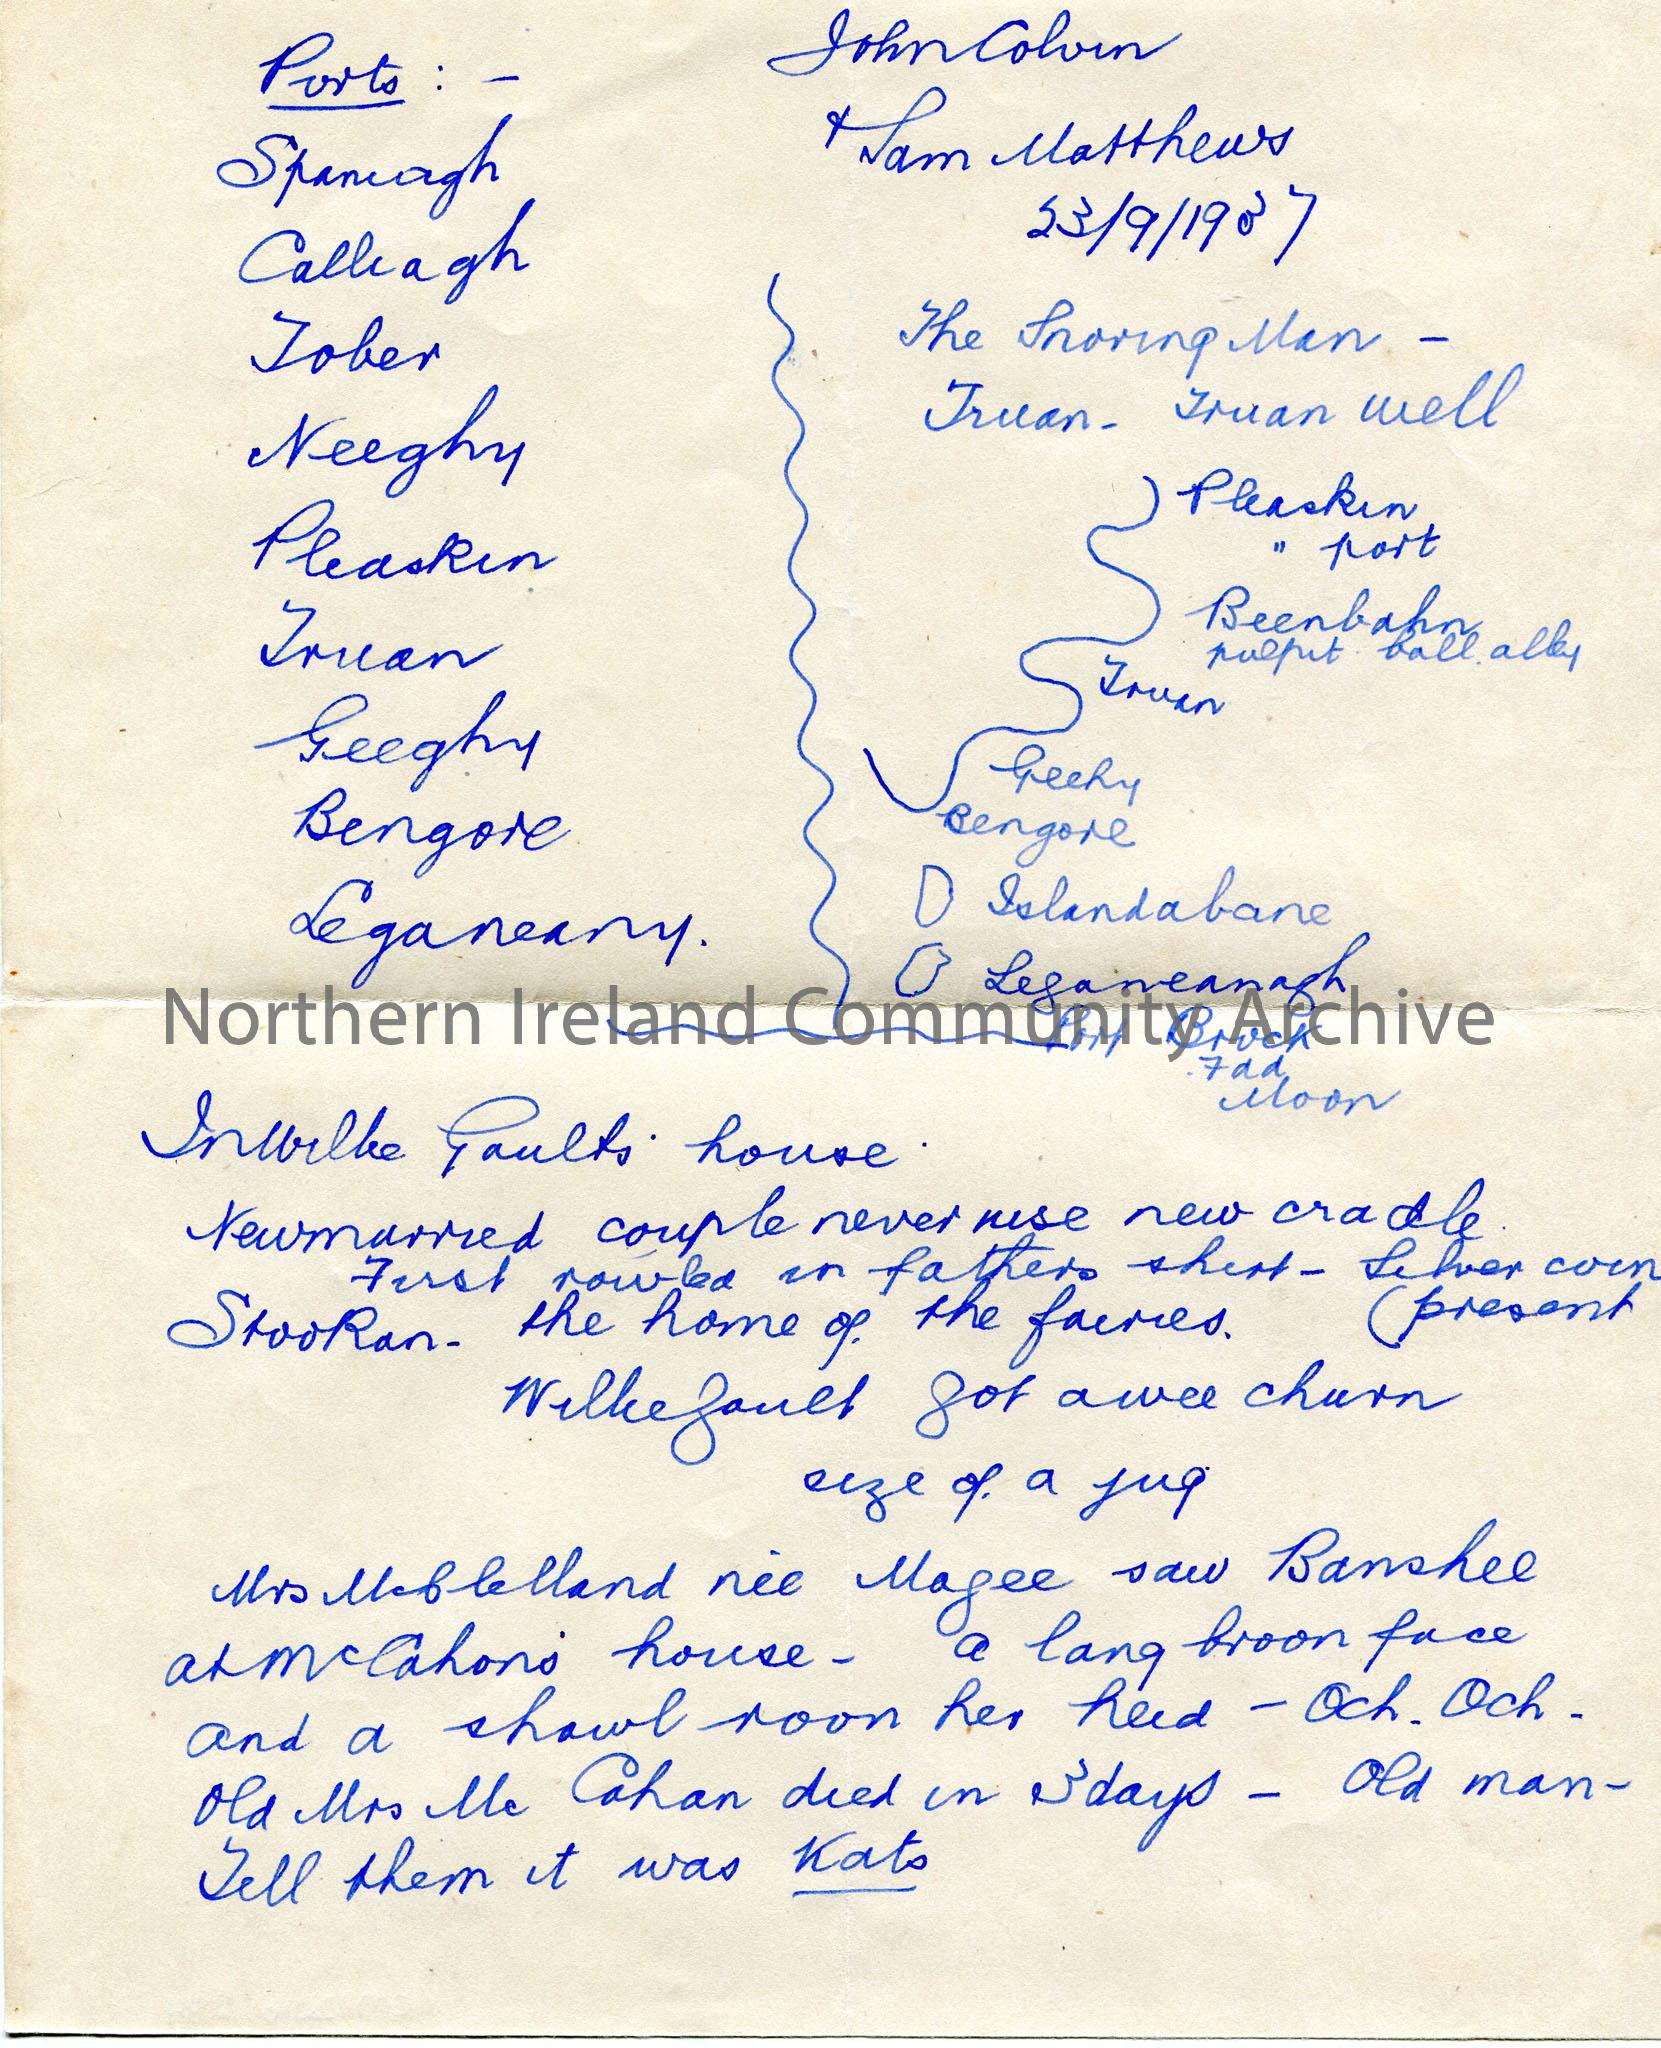 Ports : -
Spaniagh
Calliagh
Tober
Neeghy
Pleaskin
Truan
Geeghy
Bengore
Leganeany.
John Colvin
+ Sam Matthews
23/9/1937
The Snoring Man -
Truan - Truan well
Pleaskin
" port
Beenbahn
pulpit ball alley
Truan
Geehy
Bengore
Islandabane
Leganeanagh
Port Brock
Fad
Moon
Northern Ireland Community Archive
In Willie Gaults' house
New married couple never use new cradle.
First rowled in fathers shirt - Silver coin
(present
Stookan - the home of the fairies.
Willie Gault got a wee churn
size of a jug
Mrs McClelland née Magee saw Banshee
at McCahon's house - a lang broon face
and a shawl roon her heid - Och. Och -
Old Mrs McCahan died in 3 days - Old man -
Tell them it was Kats